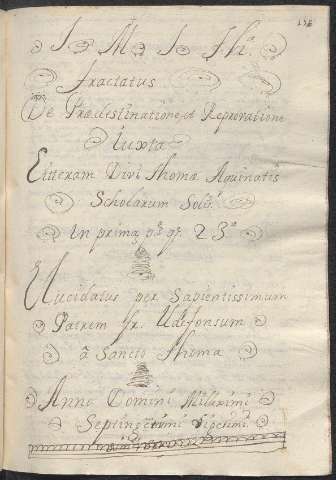 156
J M J Th.ª
Tractatus
De Prædestinatione, et Reprovatione
Iuxta
Litteram Divi Thomæ Aquinatis
Scholarum Solis
In primã p.ᵉ q. 23ª
Elucidatus per Sapientissimum
Patrem Fr. Ildefonsum
ã Sancto Thoma
Anno Domini Millesimi
Septingentimi